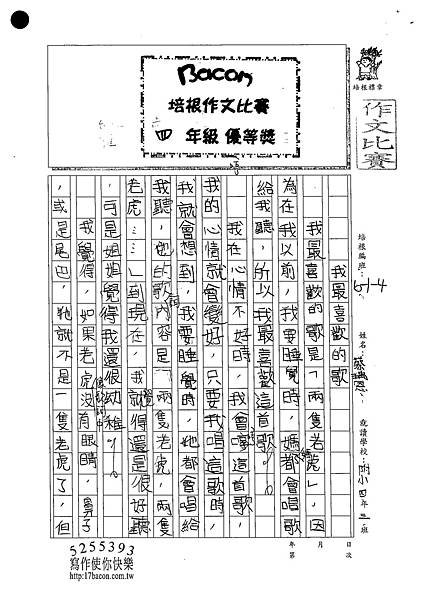 Bacon
培根作文比賽
四 年級 優等獎
培根標章
作文比賽
培根編班: 5/1-4
姓名: 蔡
就讀學校: 附小四年 班
我最喜歡的歌
我最喜歡的歌是「兩隻老虎」,因
為在我以前,我要睡覺時,媽都會唱歌
給我聽,所以我最喜歡這首歌。
我在心情不好時,我會嗲這首歌,
我的心情就會變好,只要我唱這首歌時,
我就會想到,我要睡覺時,她都會唱給
我聽,她的歌內容是「兩隻老虎,兩隻
老虎……」到現在,我就得還是很好聽
,可是姐姐覺得我還很幼稚。
我覺得,如果老虎沒有眼睛,鼻子
,或是尾巴,牠就不是一隻老虎了,但
年 月 日
第 次
5255393
寫作使你快樂
http://17bacon.com.tw